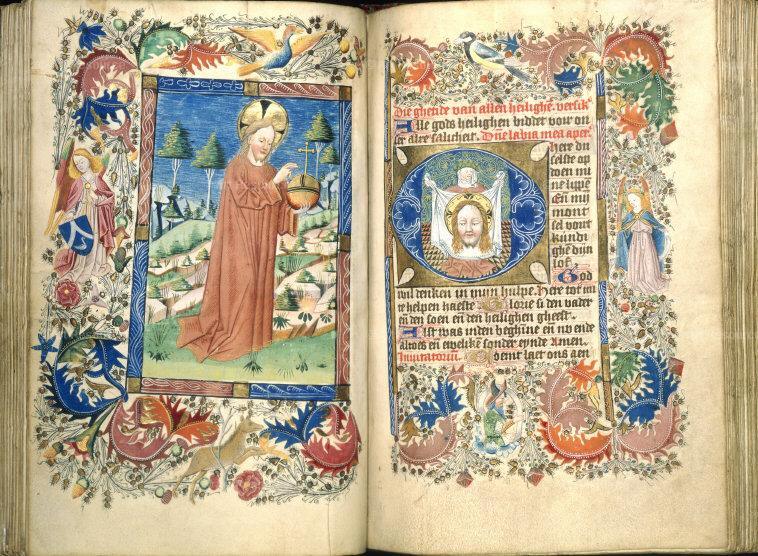 Die ghetide van allen heilighē. versik'
Alle gods heilighen biddet voir on
ser alre salicheit. Dñe labia mea aperi'
Here du
selste op
doen mi
ne lippē
Eñ mij
mont
sel vort
kundi
ghē dijn
lof. God
wil denken in mijn hulpe. Here tot mi
te helpen haeste Glorie si den vader
eñ den soen eñ den heilighen gheest.
Alst was inden beghīne eñ nv ende
altoes eñ ewelike sonder eynde Amen.
Inuitatoriū. Coemt laet ons aen